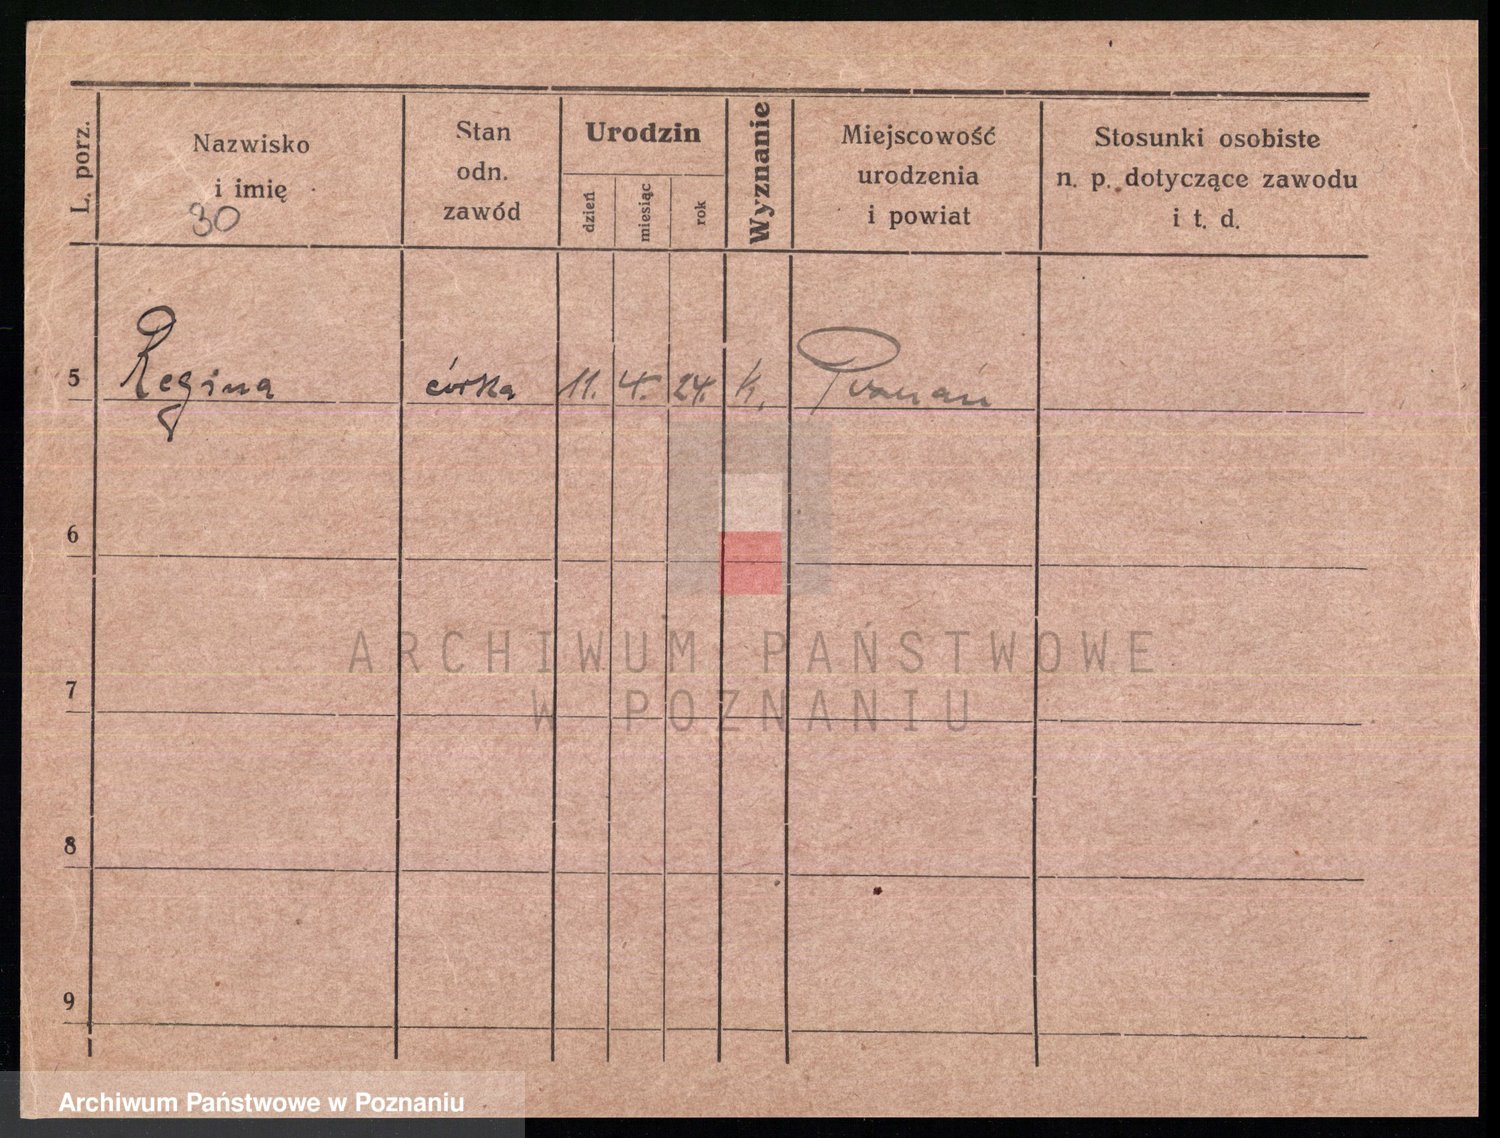 L. porz.
Nazwisko
i imię
30
Stan
odn.
zawód
Urodzin
dzień
miesiąc
rok
Wyznanie
Miejscowość
urodzenia
i powiat
Stosunki osobiste
n. p. dotyczące zawodu
i t. d.
5 Regina córka 11. 4. 24. k. Poznań
6
7
8
9
ARCHIWUM PAŃSTWOWE
W POZNANIU
Archiwum Państwowe w Poznaniu